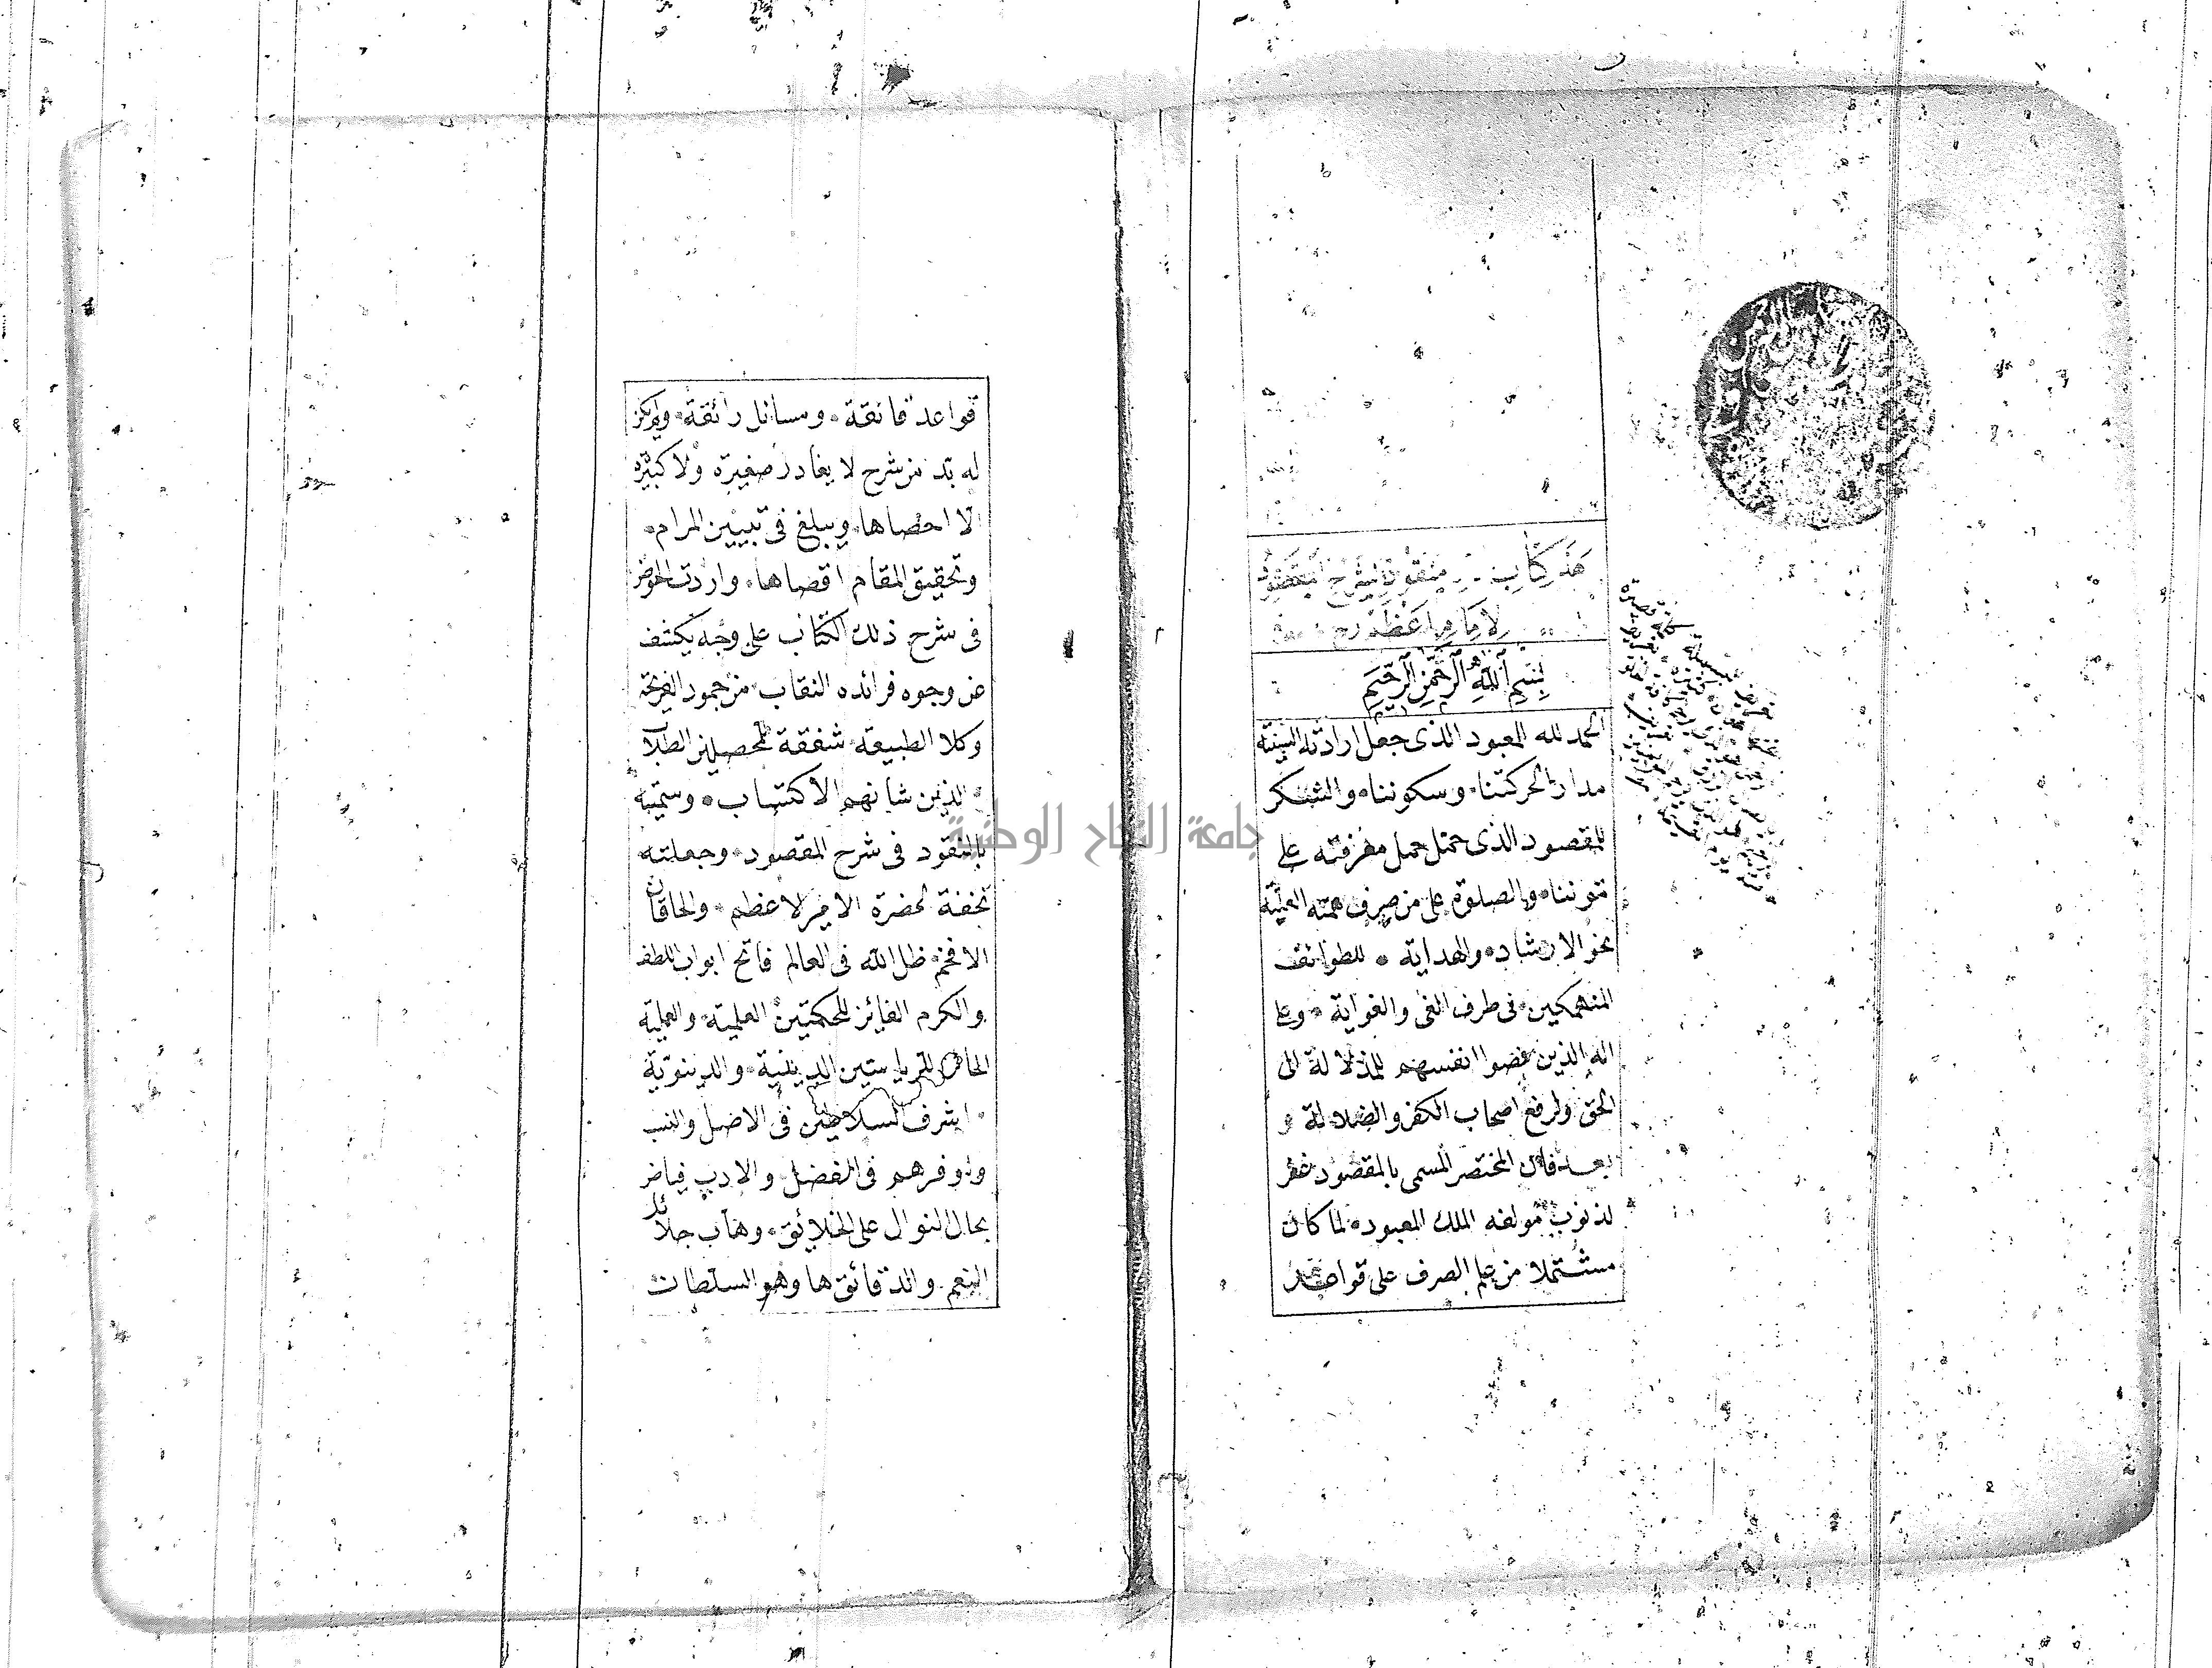 هذ كتاب منقود شرح المقصود
لامام اعظم رح
بسم الله الرحمن الرحيم
الحمد لله المعبود الذى جعل ارادته السنية
مدار الحركتنا وسكوننا والشكر
للمقصود الذى حمل معرفته على
متوننا والصلوة على من صرف همته العلية
نحو الارشاد والهداية للطوائف
المنهمكين فى طرف الغى والغواية وعلى
اله الذين غضوا انفسهم للدلالة الى
الحق ولرفع اصحاب الكفر والضلالة و
بعد فان المختصر المسمى بالمقصود غفر
لذنوب مولفه الملك المعبود لما كان
مشتملا من علم الصرف على قواعد
قواعد فائقة ومسائل رائقة ولم يكن
له بد من شرح لا يغادر صغيرة ولا كبيرة
الا احصاها ويبلغ فى تبيين المرام
وتحقيق المقام اقصاها واردت الخوض
فى شرح ذلك الكتاب على وجه يكشف
عن وجوه فرائده النقاب من جمود القريحة
وكلا الطبيعة شفقة للمحصلين الطلاب
الذين شانهم الاكتساب وسميته
بالمنقود فى شرح المقصود وجعلته
تحفة لحضرة الامير الاعظم والخاقان
الافخم ظل الله فى العالم فاتح ابواب اللطف
والكرم الفائز للحكمتين العلمية والعملية
الحائز للرياستين الدينية والدينوية
اشرف السلاطين فى الاصل والنسب
واوفرهم فى الفضل والادب فياض
بحال النوال على الخلائق وهاب جلائد
النعم والدقائق ها وهو السلطان
جامعة النجاح الوطنية